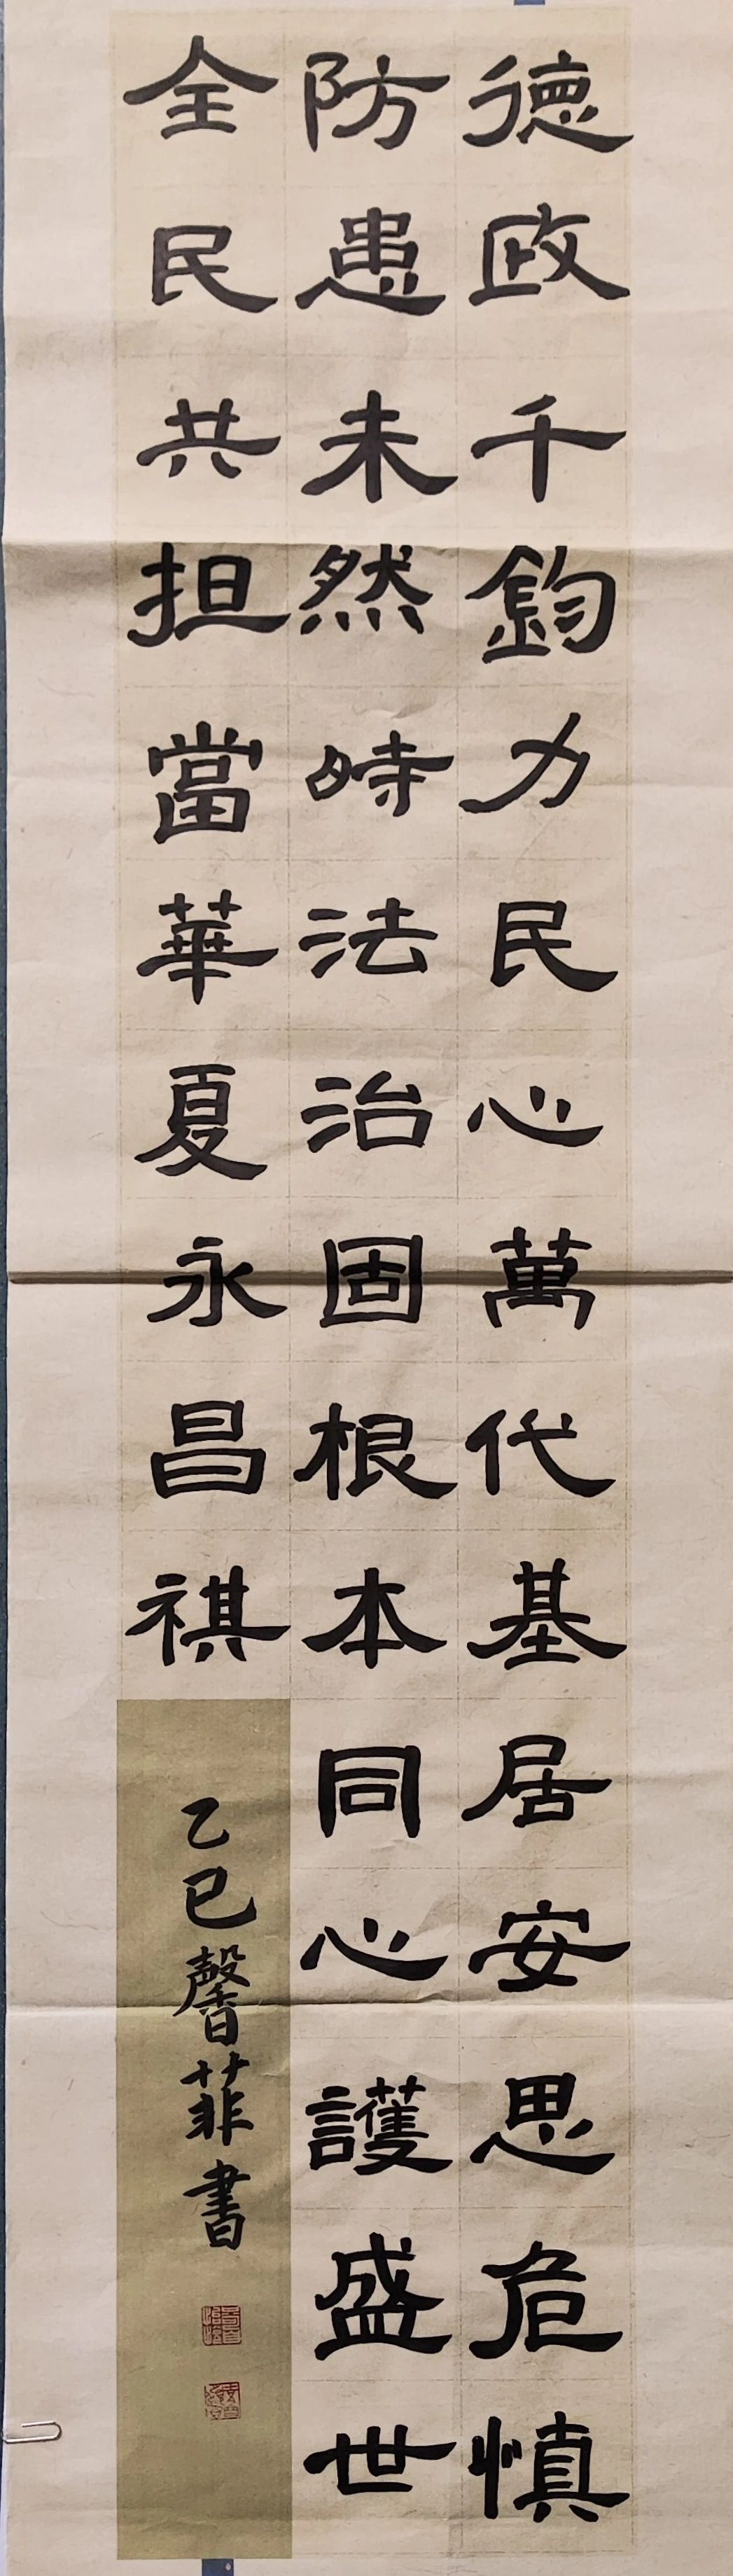 德政千鈞力民心萬代基居安思危慎
防患未然時法治固根本同心護盛世
全民共担當華夏永昌祺
乙巳馨菲書